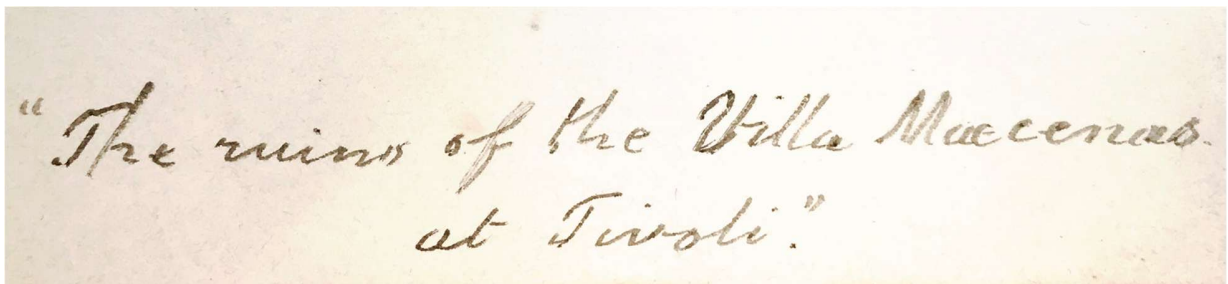 "The ruins of the Villa Maecenas.
at Tivoli."